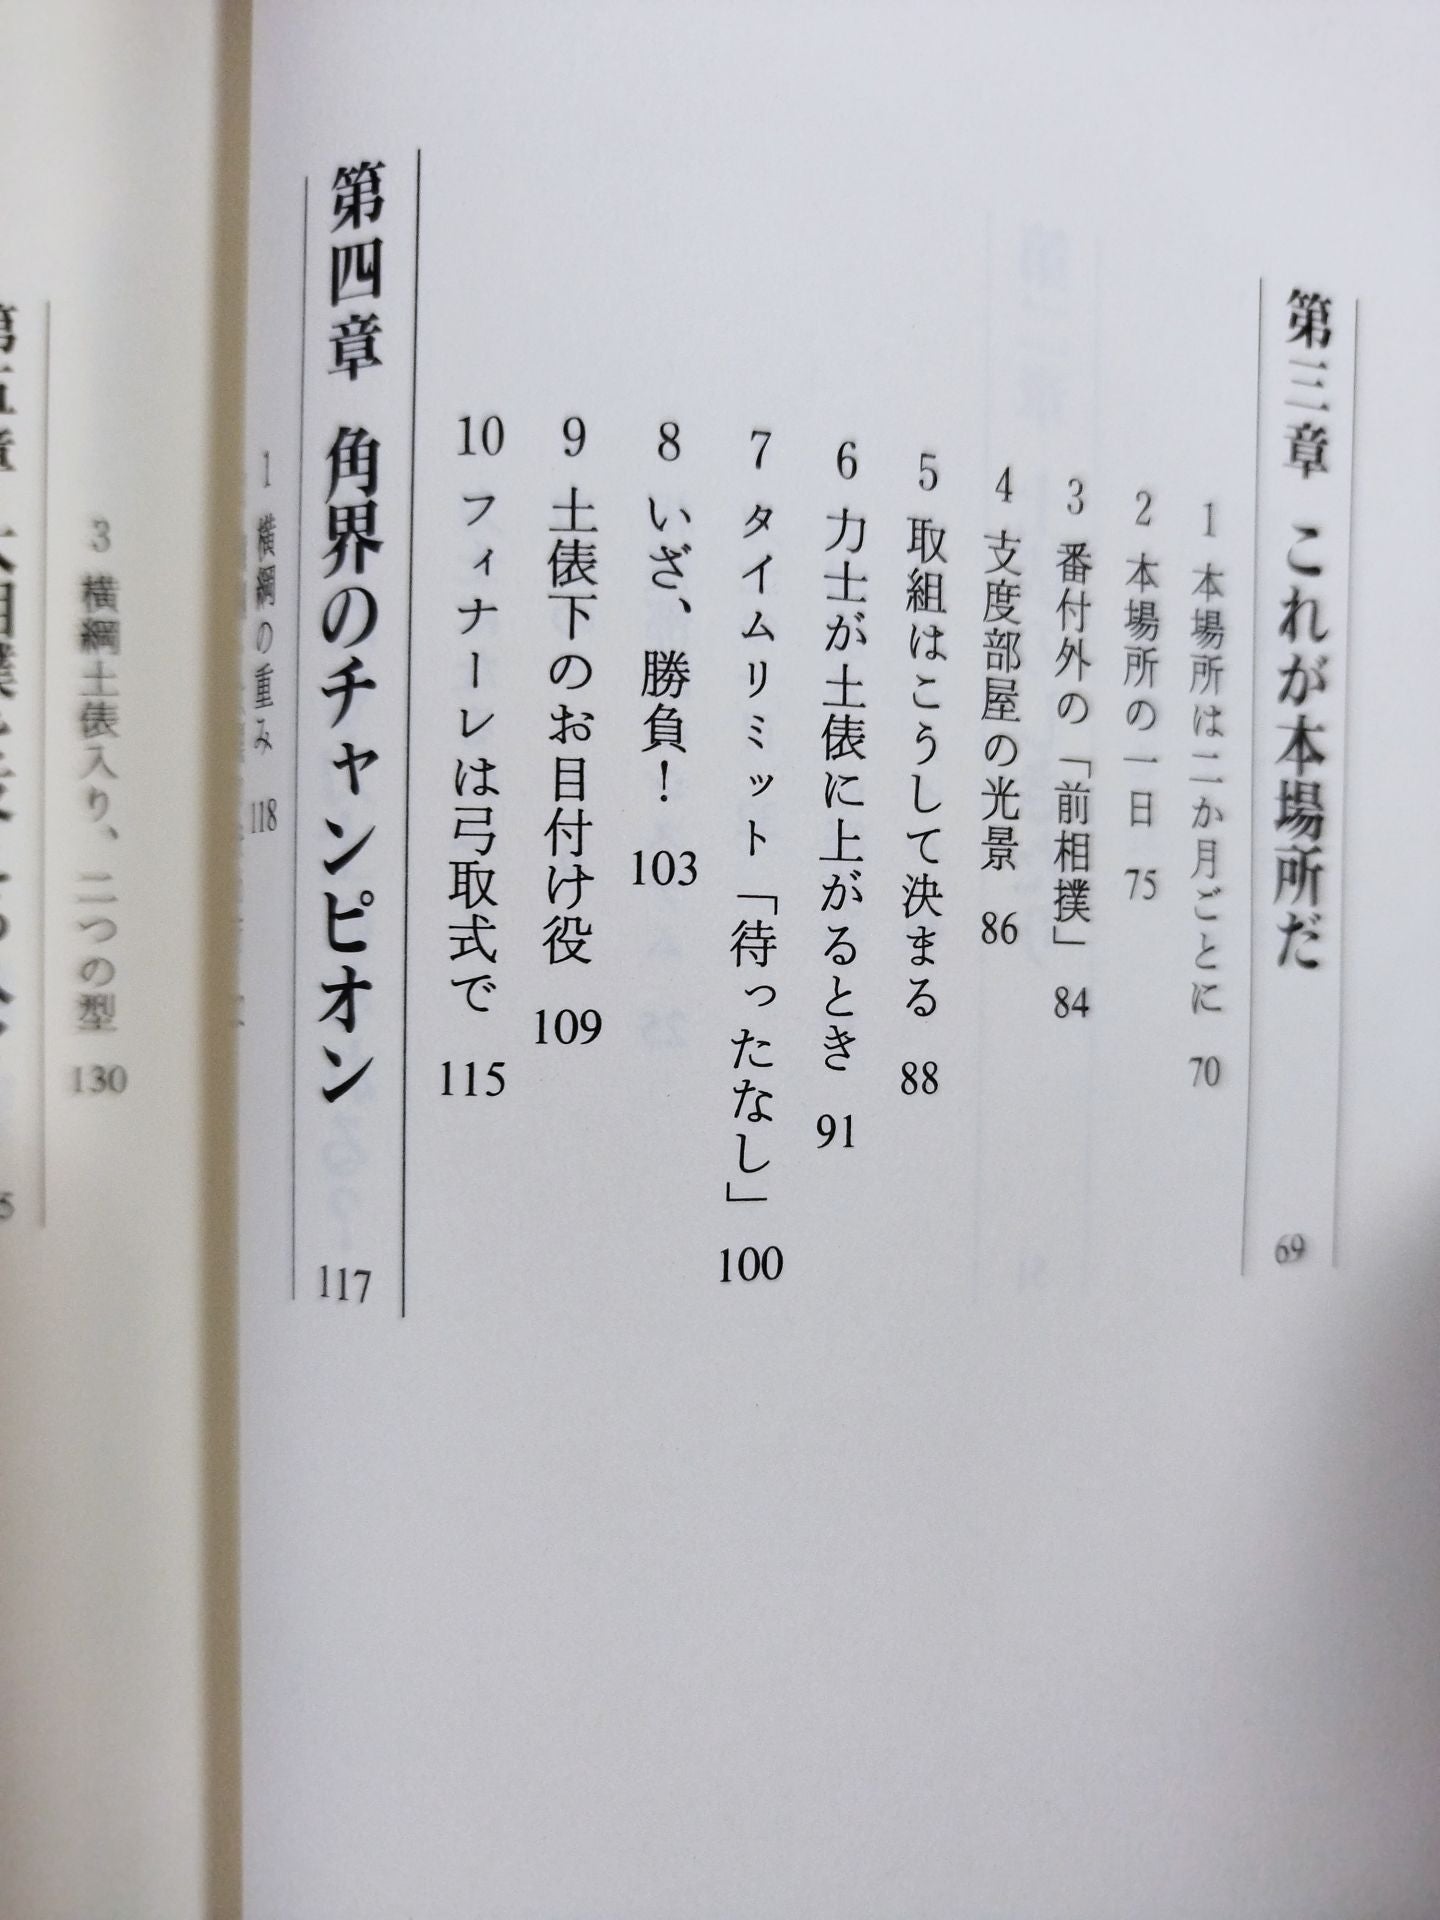 第三章 これが本場所だ 69
1 本場所は二か月ごとに 70
2 本場所の一日 75
3 番付外の「前相撲」 84
4 支度部屋の光景 86
5 取組はこうして決まる 88
6 力士が土俵に上がるとき 91
7 タイムリミット「待ったなし」 100
8 いざ、勝負！ 103
9 土俵下のお目付け役 109
10 フィナーレは弓取式で 115
第四章 角界のチャンピオン 117
1 横綱の重み 118
3 横綱土俵入り、二つの型 130
第五章